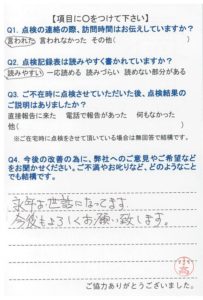 【項目に○をつけて下さい】
Q1. 点検の連絡の際、訪問時間はお伝えしていますか？
言われた 言われなかった その他( )
Q2. 点検記録表は読みやすく書かれていますか？
読みやすい 一応読める 読みづらい 読めない部分がある
Q3. ご不在時に点検させていただいた後、点検結果の
ご説明はありましたか？
直接報告に来た 電話で報告があった 何もなかった
他( )
※ご在宅時に点検をさせて頂いている場合は無回答で結構です。
Q4. 今後の改善の為に、弊社へのご意見やご希望など
をお聞かせください。ご不満やお叱りなど、どのようなこと
でも結構です。
永年お世話になってます。
今後もよろしくお願い致します。
小高
ご協力ありがとうございました。